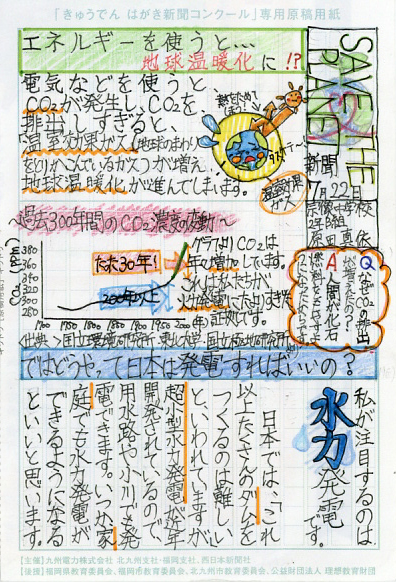 「きゅうでん はがき新聞コンクール」専用原稿用紙
SAVE THE PLANET
新聞
7月22日
エネルギーを使うと…
地球温暖化に!?
電気などを使うと
CO2が発生し、CO2を
排出しすぎると、
温室効果ガス(地球のまわり
をかこんでいるガス)が増え、
地球温暖化が進んでしまいます。
温室効果ガス
Q
A
〜過去300年間のCO2濃度の変動〜
380
360
340
320
300
280
1700 1750 1800 1850 1900 1950 2000(年)
たった30年!
200年以上
グラフよりCO2は
年々増加しています。
これは私たちが
火力発電にたよりすぎた
証拠です。
ではどうやって日本は発電すればいいの?
私が注目するのは
水力発電です。
日本では、これ
以上たくさんのダムを
つくるのは難しい
といわれていますが、
超小型水力発電が近年
開発されているので、
用水路や小川でも発
電できます。いつか家
庭でも水力発電が
できるようになる
といいと思います。
【主催】九州電力株式会社 北九州支社・福岡支社、西日本新聞社
【後援】福岡県教育委員会、福岡市教育委員会、北九州市教育委員会、公益財団法人 理想教育財団